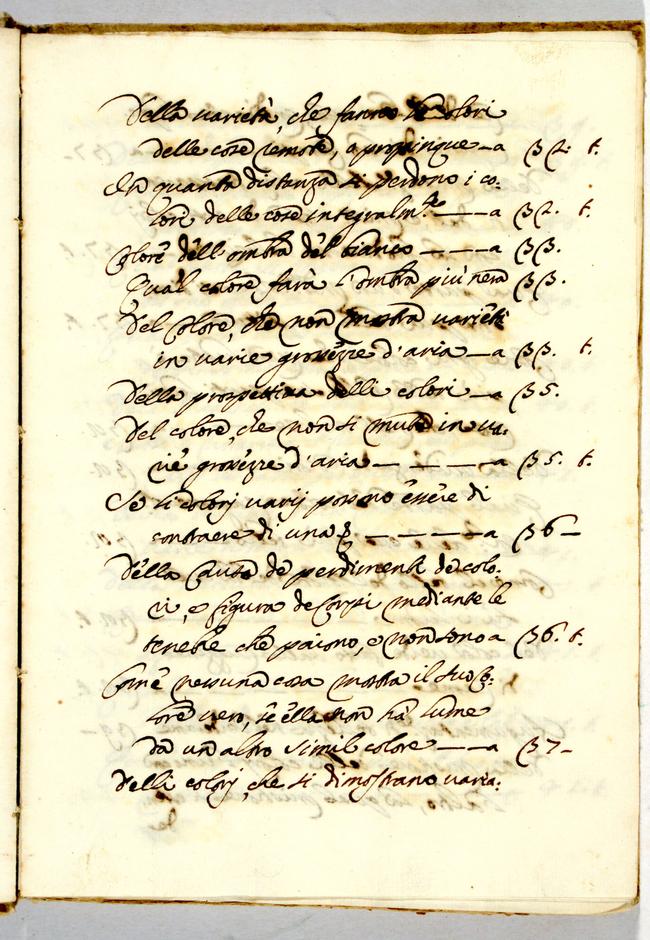 Della varietà, che fanno li colori
delle cose remote, a propinque — a (32. t.
In quanta distanza si perdono i co:
lori delle cose integralm.te — a (32. t.
Colore dell'ombra del bianco — — — a (33.
Qual colore farà l'ombra più nera (33.
Del Colore, che non mostra varietà
in varie grossezze d'aria — a (33. t.
Della prospettiva delli colori — a (35.
Del colore, che non si muta in va:
rie grossezze d'aria — — — — a (35. t.
Se li colorj varij possono essere di
di una — — — — a (36 —
Della Causa de' perdimenti de colo:
ri, e figura de Corpi mediante le
tenebre che paiono, e non sono a (36. t.
Com'è nessuna cosa mostra il suo Co:
lore vero, se ella non ha lume
da un altro simil colore — — a (37 —
Delli colorj, che si dimostrano varia: